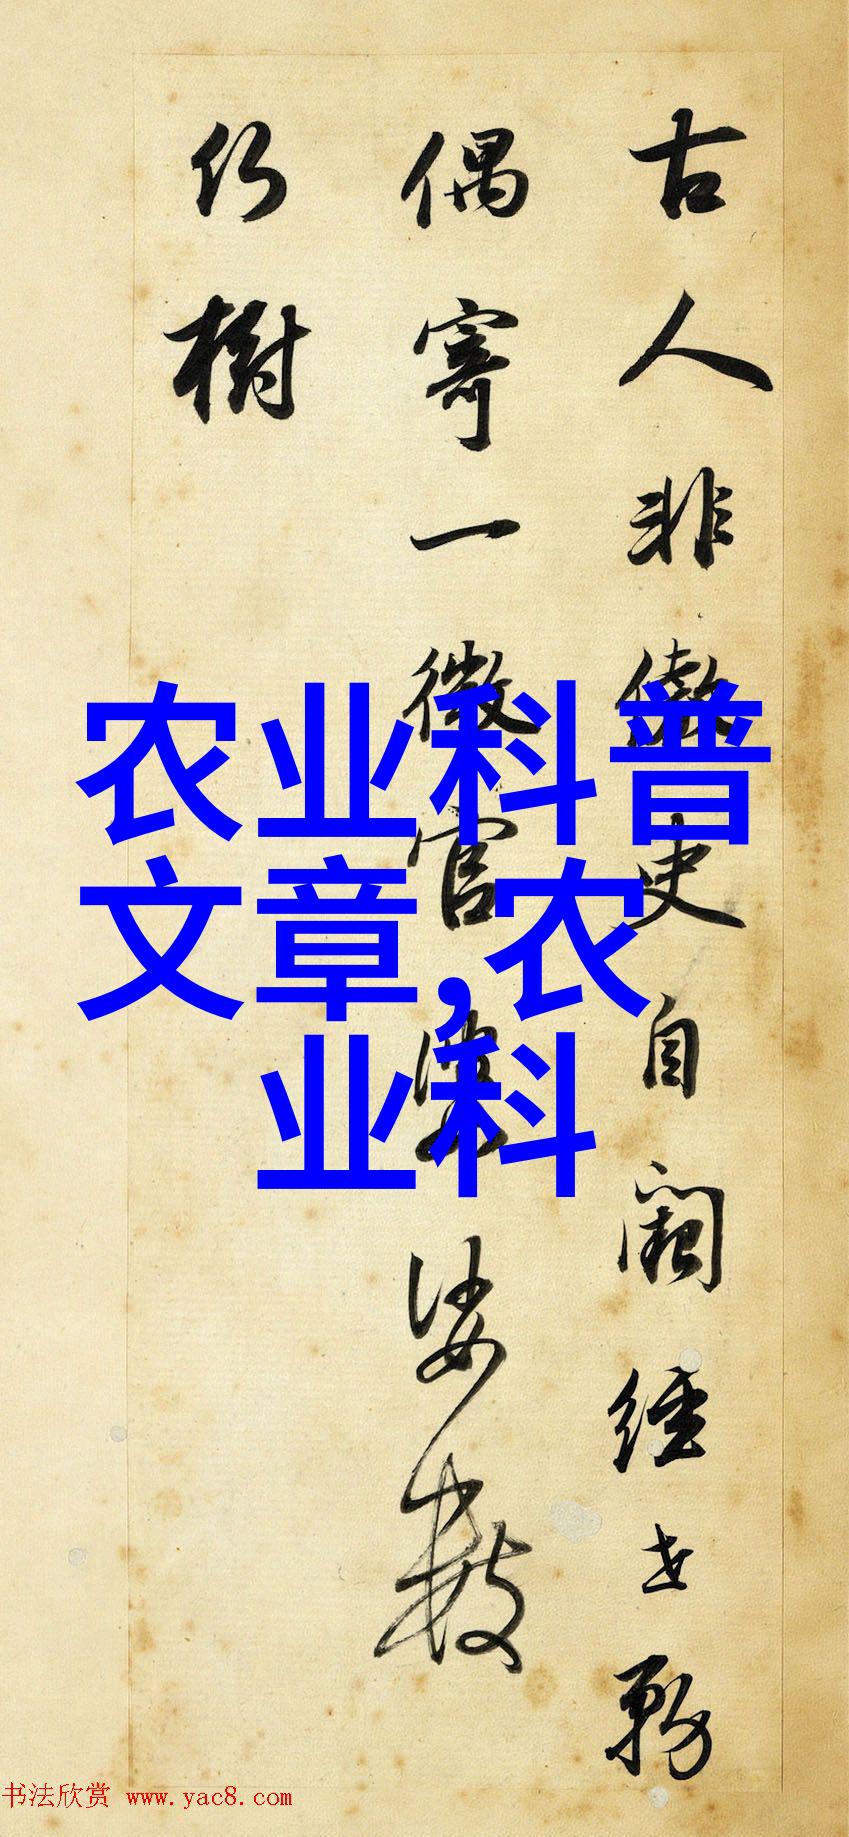 古人非傲吏自闕經世務
偶寄一微官婆娑數
樹
农业科普
文章,农
业科
书法欣赏 www.yac8.com